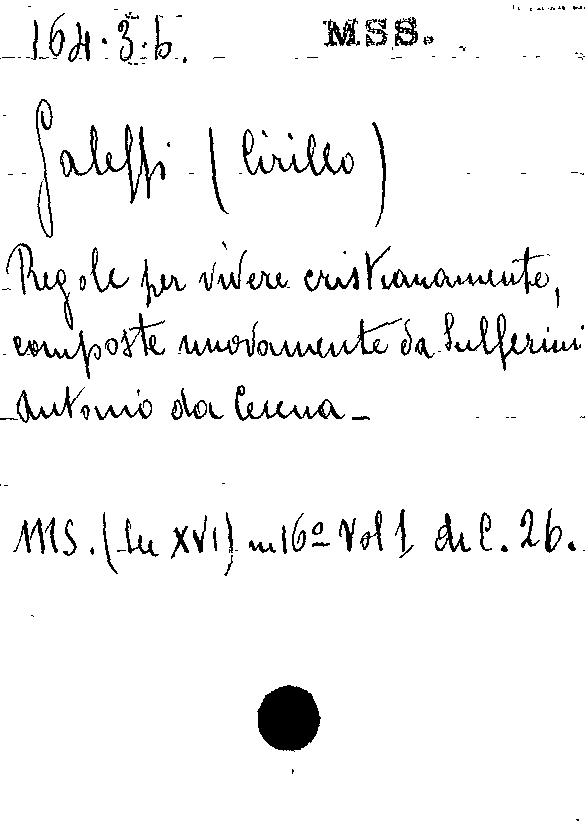 164.3.6. MSS.
Galeffi (Cirillo)
Regole per vivere cristianamente,
composte nuovamente da Sulferini
Antonio da Cesena_
MS. (Sec XVI) in 16º Vol 1 di C. 26.